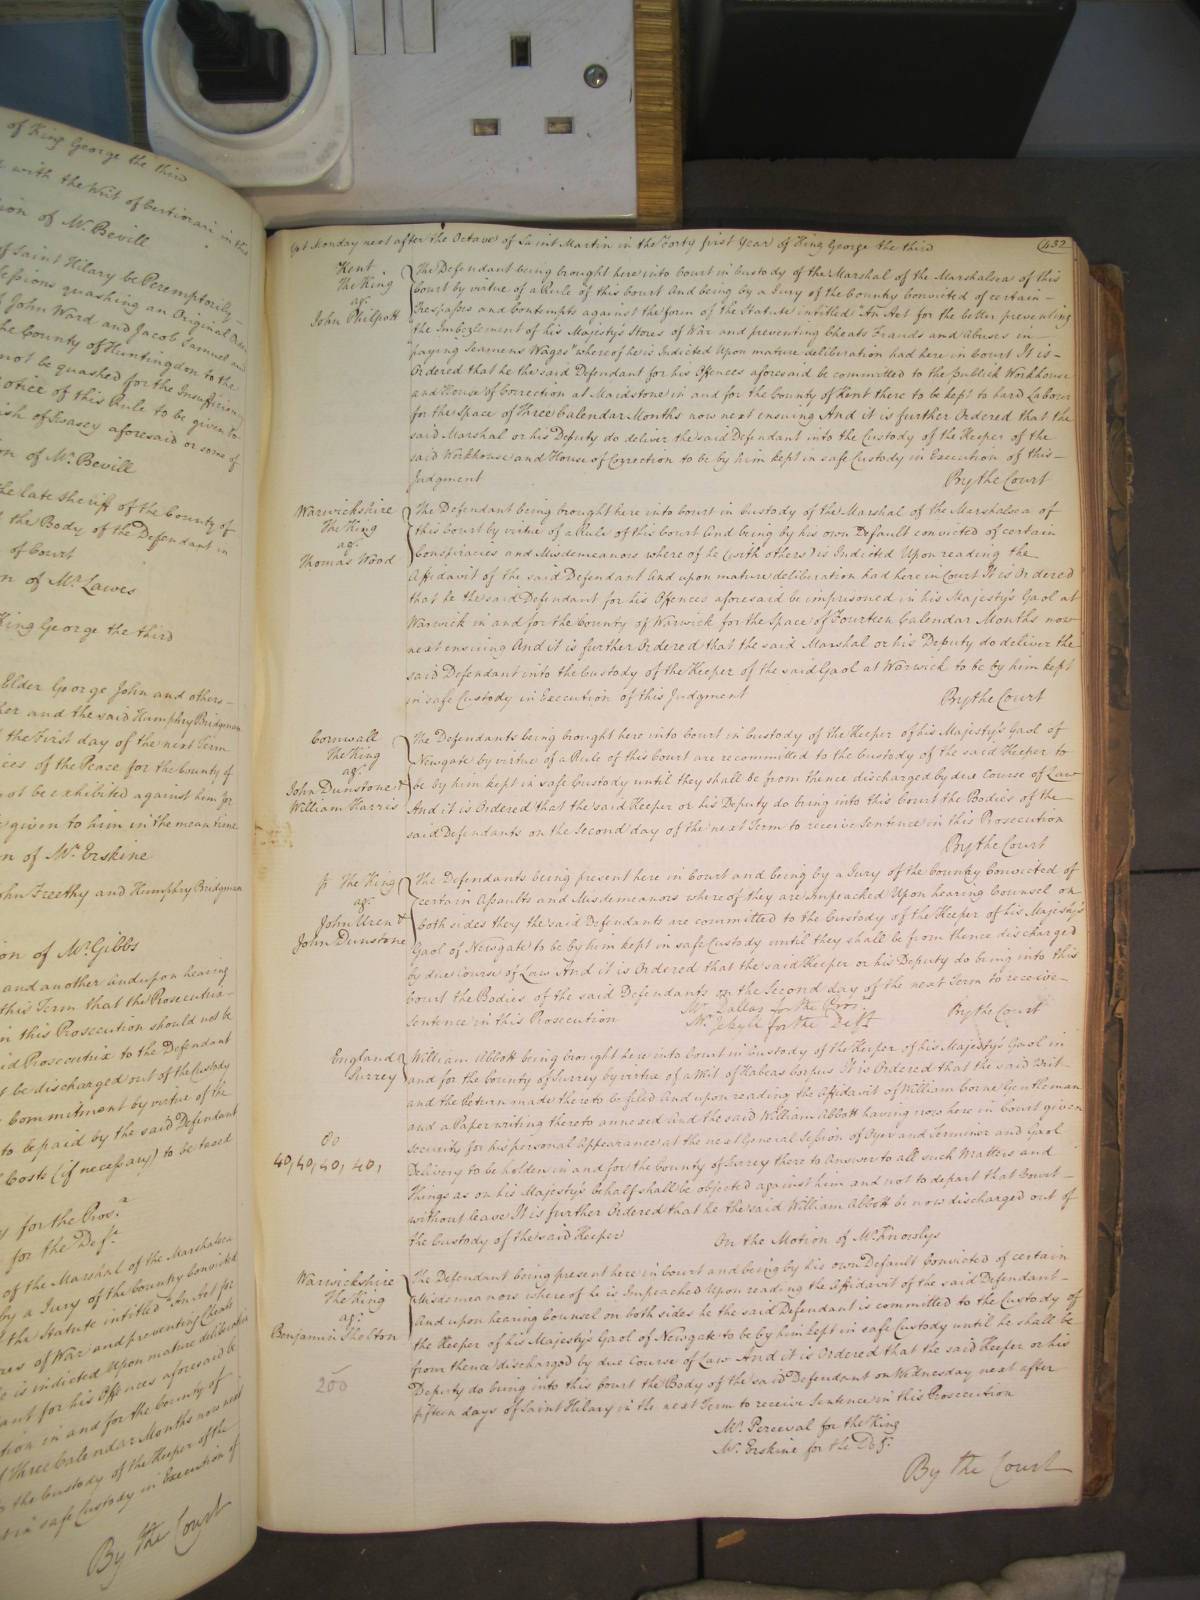 of King George the third
with the Writ of Certiorari in this
ion of Mr. Bevill
of Saint Hilary be Peremptorily
Sessions quashing an Original Order
John Ward and Jacob Samuel and
the County of Huntingdon to the
not be quashed for the Insufficiency
Notice of this Rule to be given to
ish of Swasey aforesaid or some of
on of Mr. Bevill
the late Sheriff of the County of
the Body of the Defendant in
of Court
n of Mr. Lawes
King George the third
Elder George John and others
her and the said Humphry Bridgman
the First day of the next Term
ices of the Peace for the County of
not be exhibited against him for
given to him in the mean time
n of Mr. Erskine
John Freethy and Humphry Bridgman
on of Mr. Gibbs
and another and upon hearing
this Term that the Prosecutrix
in this Prosecution should not be
id Prosecutrix to the Defendant
be discharged out of the Custody
Commitment by virtue of the
to be paid by the said Defendant
Costs (if necessary) to be taxed
for the Pros.
for the Def.t
of the Marshal of the Marshalsea
by a Jury of the Country Convicted
the Statute intitled "An Act for
res of War and preventing Cheats
e is indicted Upon mature deliberation
ant for his Offences aforesaid be
tion in and for the County of
Three Calendar Months now next
the Custody of the Keeper of the
in safe Custody in Execution of
By the Court
Yet Monday next after the Octave of Saint Martin in the forty first Year of King George the third
432
Kent
The King
agt.
John Philpott
The Defendant being brought here into Court in Custody of the Marshal of the Marshalsea of this
Court by virtue of a Rule of this Court And being by a Jury of the Country Convicted of certain
Trespasses and Contempts against the form of the Statute intitled "An Act for the better preventing
"the Imbezlement of his Majesty's Stores of War and preventing Cheats Frauds and Abuses in
"paying Seamens Wages" whereof he is Indicted Upon mature deliberation had here in Court It is
Ordered that he the said Defendant for his Offences aforesaid be committed to the publick Workhouse
and House of Correction at Maidstone in and for the County of Kent there to be kept to hard Labour
for the Space of Three Calendar Months now next ensuing And it is further Ordered that the
said Marshal or his Deputy do deliver the said Defendant into the Custody of the Keeper of the
said Workhouse and House of Correction to be by him kept in safe Custody in Execution of this
Judgment
By the Court
Warwickshire
The King
agt.
Thomas Wood
The Defendant being brought here into Court in Custody of the Marshal of the Marshalsea of
this Court by virtue of a Rule of this Court And being by his own Default convicted of certain
Conspiracies and Misdemeanors where of he (with others) is Indicted Upon reading the
Affidavit of the said Defendant And upon mature deliberation had here in Court It is Ordered
that he the said Defendant for his Offences aforesaid be imprisoned in his Majesty's Gaol at
Warwick in and for the County of Warwick for the Space of Fourteen Calendar Months now
next ensuing And it is further Ordered that the said Marshal or his Deputy do deliver the
said Defendant into the Custody of the Keeper of the said Gaol at Warwick to be by him kept
in safe Custody in Execution of this Judgment
By the Court
Cornwall
The King
agt.
John Dunstone &
William Harris
The Defendants being brought here into Court in Custody of the Keeper of his Majesty's Gaol of
Newgate by virtue of a Rule of this Court are recommitted to the Custody of the said Keeper to
be by him kept in safe Custody until they shall be from thence discharged by due Course of Law
And it is Ordered that the said Keeper or his Deputy do bring into this Court the Bodies of the
said Defendants on the Second day of the next Term to receive Sentence in this Prosecution
By the Court
The King
agt.
John Uren &
John Dunstone
The Defendants being present here in Court and being by a Jury of the Country Convicted of
certain Assaults and Misdemeanors where of they are Impeached Upon hearing Counsel on
both sides they the said Defendants are committed to the Custody of the Keeper of his Majesty's
Gaol of Newgate to be by him kept in safe Custody until they shall be from thence discharged
by due Course of Law And it is Ordered that the said Keeper or his Deputy do bring into this
Court the Bodies of the said Defendants on the Second day of the next Term to receive
Sentence in this Prosecution
Mr. Dallas for the Pros.
Mr. Jekyll for the Def.ts
By the Court
England
Surrey
80
40, 40, 40, 40,
William Abbott being brought here into Court in Custody of the Keeper of his Majesty's Gaol in
and for the County of Surrey by virtue of a Writ of Habeas Corpus It is Ordered that the said Writ
and the Return made thereto be filed And upon reading the Affidavit of William Corne Gentleman
and a Paper writing thereto annexed And the said William Abbott having now here in Court given
security for his personal Appearance at the next General Session of Oyer and Terminer and Gaol
Delivery to be holden in and for the County of Surrey there to Answer to all such Matters and
Things as on his Majesty's behalf shall be objected against him and not to depart that Court
without leave It is further Ordered that he the said William Abbott be now discharged out of
the Custody of the said Keeper
On the Motion of Mr. Knowlys
Warwickshire
The King
agt.
Benjamin Shelton
200
The Defendant being present here in Court and being by his own Default Convicted of certain
Misdemeanors where of he is Impeached Upon reading the Affidavit of the said Defendant
And upon hearing Counsel on both sides he the said Defendant is committed to the Custody of
the Keeper of his Majesty's Gaol of Newgate to be by him kept in safe Custody until he shall be
from thence discharged by due Course of Law And it is Ordered that the said Keeper or his
Deputy do bring into this Court the Body of the said Defendant on Wednesday next after
fifteen days of Saint Hilary in the next Term to receive Sentence in this Prosecution
Mr. Perceval for the King
Mr. Erskine for the Deft.
By the Court